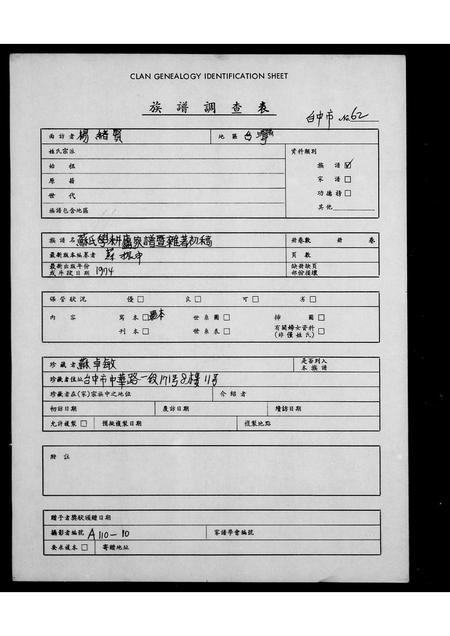 CLAN GENEALOGY IDENTIFICATION SHEET
族譜調查表
台中市 No 62
面訪者 楊緒賢 地區 台灣
姓氏宗派 資料類別
始祖 族譜 ☑
原籍 家譜 □
世代 功德榜 □
族譜包含地區 其他
族譜名 蘇氏學耕廬家譜暨雜著初稿 冊卷數 冊 卷
最新版本編纂者 蘇 頁數
最新出版年份或年段日期 1974 缺冊缺頁部份損壞
保管狀況 優 □ 良 □ 可 □ 劣 □
內容 寫本 □ 世系圖 □ 揷圖 □
刊本 □ 世系表 □ 有關婦女資料(非僅姓氏) □
珍藏者 蘇卓敏 是否列入本族譜
珍藏者住址 台中市中華路一段171号8樓11号
珍藏者在(家)宗族中之地位 介紹者
初訪日期 度訪日期 續訪日期
允許複製 □ 擬敬複製日期 複製地點
附註
贈予者獎狀頒贈日期
攝影者編號 A110-10 家譜學會編號
要求複本 □ 寄贈地址